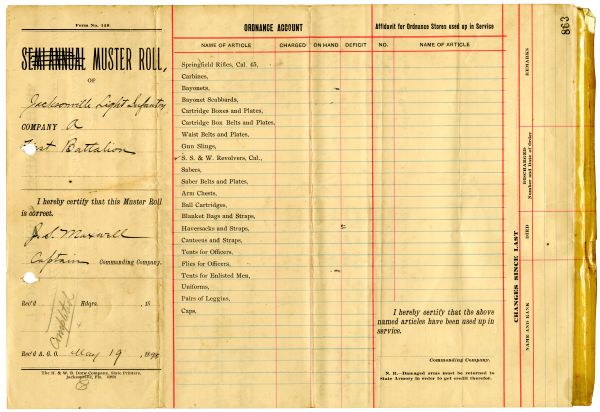 Form No. 148
SEMI ANNUAL MUSTER ROLL,
OF
Jacksonville Light Infantry
COMPANY A
First Battalion
I hereby certify that this Muster Roll
is correct.
J. S. Maxwell
Captain Commanding Company.
Rec'd Hdqrs. 18
Completed
Rec'd A. G. O. May 19 1898
The H. & W. B. Drew Company, State Printers,
Jacksonville, Fla.
ORDNANCE ACCOUNT
NAME OF ARTICLE CHARGED ON HAND DEFICIT
Springfield Rifles, Cal. 45,
Carbines,
Bayonets,
Bayonet Scabbards,
Cartridge Boxes and Plates,
Cartridge Box Belts and Plates,
Waist Belts and Plates,
Gun Slings,
S. S. & W. Revolvers, Cal.,
Sabers,
Saber Belts and Plates,
Arm Chests,
Ball Cartridges,
Blanket Bags and Straps,
Haversacks and Straps,
Canteens and Straps,
Tents for Officers,
Flies for Officers,
Tents for Enlisted Men,
Uniforms,
Pairs of Leggins,
Caps,
Affidavit for Ordnance Stores used up in Service
NO. NAME OF ARTICLE
I hereby certify that the above
named articles have been used up in
service.
Commanding Company.
N. B.—Damaged arms must be returned to
State Armory in order to get credit therefor.
CHANGES SINCE LAST
NAME AND RANK
DIED
DISCHARGED
Number and Date of Order
REMARKS
863